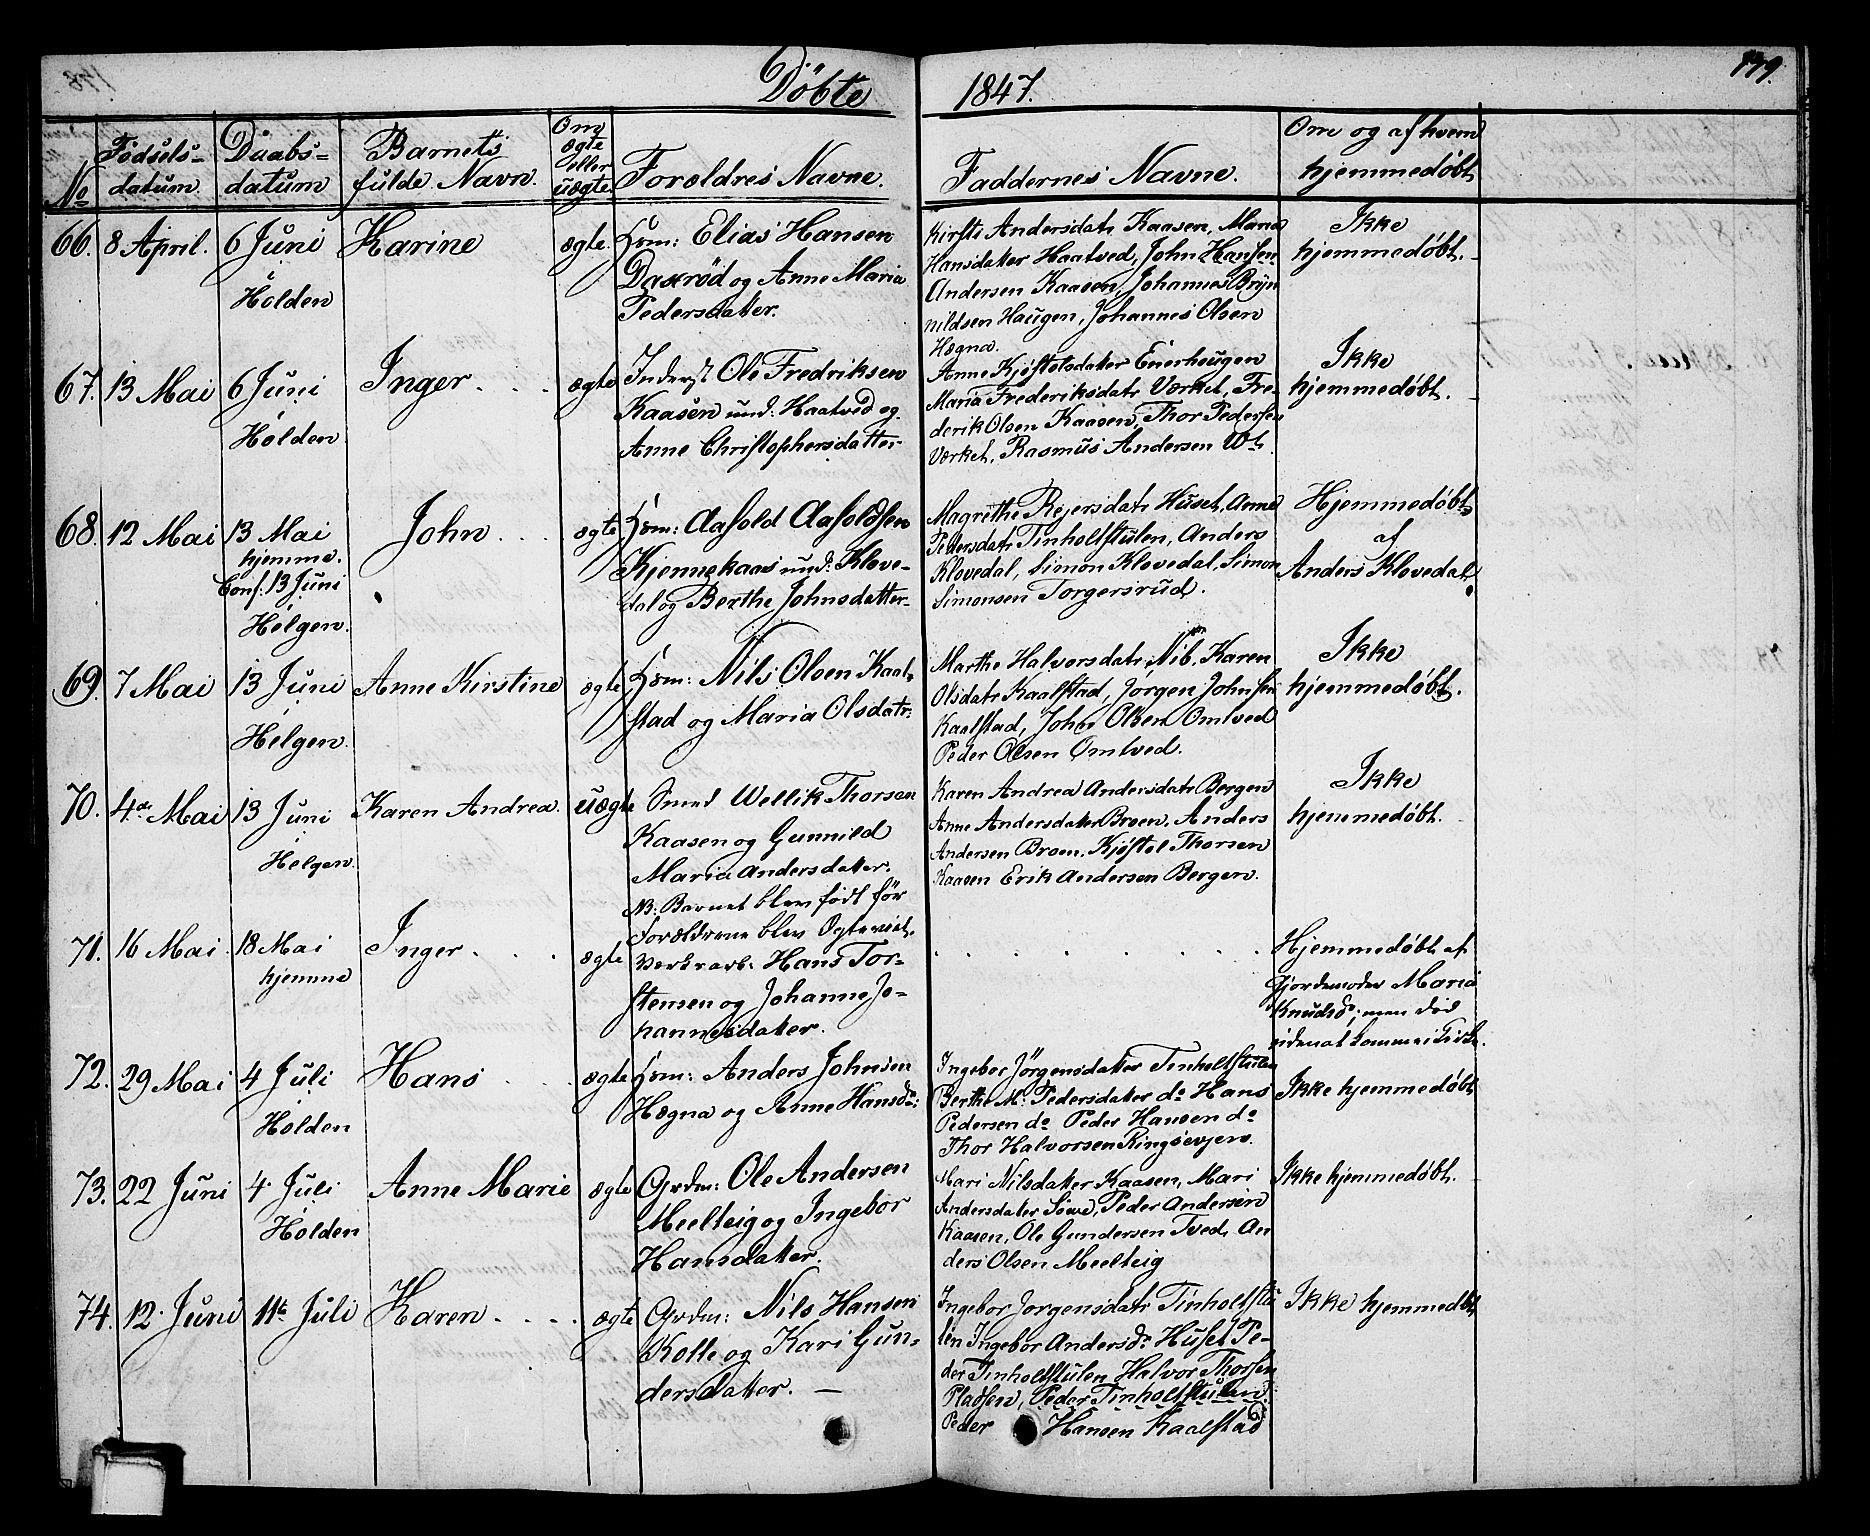 Döbte 1847. 179.
No
Födsels-
datum.
Daabs-
datum
Barnets
fulde Navn.
Om
ægte
eller
uægte
Forældres Navne.
Faddernes Navne.
Om og af hvem
hjemmedøbt
66. 8 April.
6 Juni
Holden
Karine
ægte.
Hsm: Elias Hansen
Daxröd og Anne Maria
Pedersdatter.
Kirsti Andersdatr Kaasen, Maria
Hansdatter Haatved, John Hansen
Andersen Kaasen, Johannes Bryn
nildsen Haugen, Johannes Olsen
Hægna.
Ikke
hjemmedøbt.
67. 13 Mai
6 Juni
Holden
Inger
ægte
Inderst Ole Fredriksen
Kaasen und: Haatved og
Anne Christophersdatter
Anne Kjöstelsdatter Enerhougen
Maria Frederiksdatr Værket, Fre-
derik Olsen Kaasen, Thor Pedersen
Værket, Rasmus Andersen
Ikke
hjemmedøbt.
68. 12 Mai
13 Mai
hjemme.
Conf. 13 Juni
Helgen.
John
ægte
Hsm: Aasold Aasoldsen
Kjennekaas und: Klove-
dal og Berthe Johnsdatter
Magrethe Rejersdatr Huset, Anne
Pedersdatr Tinholtstulen, Anders
Klovedal, Simon Klovedal, Simon
Simonsen Torgersrud.
Hjemmedøbt
af
Anders Klovedal.
69. 7 Mai
13 Juni
Helgen.
Anne Kirstine
ægte
Hsm: Nils Olsen Kaal-
stad og Maria Olsdatr:
Marthe Halvorsdatr Nib, Karen
Olsdatr Kaalstad, Jørgen Johnsen
Kaalstad, John Olsen Omtved
Peder Olsen Omtved.
Ikke
hjemmedøbt.
70. 4de Mai
13 Juni
Helgen.
Karen Andrea.
uægte
Smed Wellik Thorsen
Kaasen og Gunnild
Maria Andersdatter.
NB: Barnet blev født før
Forældrene blev Ægteviet.
Karen Andrea Andersdatr Bergen
Anne Andersdatter Broen, Anders
Andersen Broen, Kjöstel Thorsen
Kaasen Erik Andersen Bergen.
Ikke
hjemmedøbt.
71. 16 Mai
18 Mai
hjemme
Inger
ægte
Værksarb: Hans Tor-
stensen og Johanne Jo-
hannesdatter.
Hjemmedøbt af
Gjordemoder Maria
Knudsdr, men död
uden at komme i Kirke.
72. 29 Mai
4 Juli
Holden
Hans
ægte
Hsm: Anders Johnsen
Hægna og Anne Hansdr:
Ingebor Jörgensdatter Tinholtstulen
Berthe M. Pedersdatter do Hans
Pedersen do Peder Hansen do
Thor Halvorsen Ringsevjen.
Ikke hjemmedøbt
73. 22 Juni
4 Juli
Holden
Anne Marie
ægte
Grdm: Ole Andersen
Meelteig og Ingebor
Hansdatter.
Mari Nilsdatter Kaasen, Mari
Andersdatter Söwe, Peder Andersen
Kaasen, Ole Gundersen Tved, An
ders Olsen Meelteig
Ikke hjemmedøbt.
74. 12. Juni
11te Juli
Karen
ægte
Grdm: Nils Hansen
Kolle og Kari Gun-
dersdatter. —
Ingebor Jorgensdatr Tinholtstu
len Ingebor Andersdr Huset Pe-
der Tinholtstulen Halvor Thorsen
Pladsen, Peder Tinholtstulen
Peder Hansen Kaalstad
Ikke hjemmedøbt